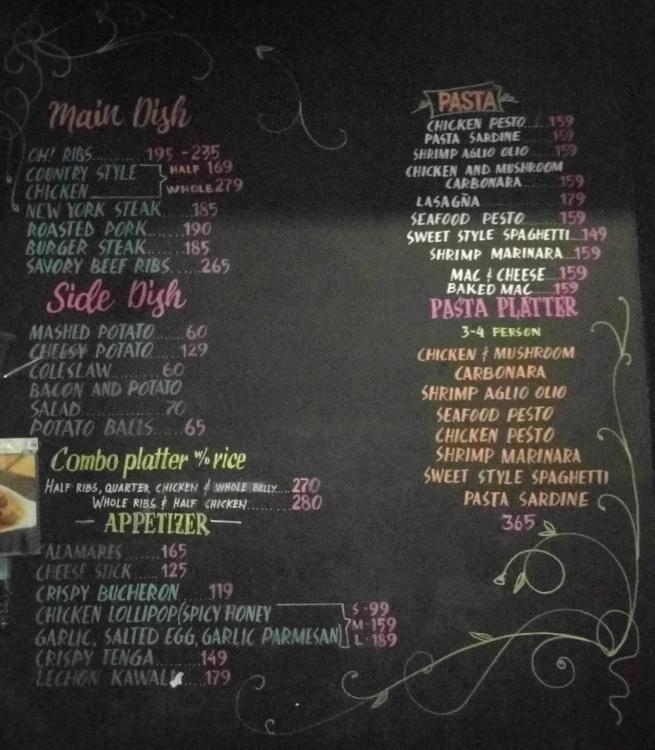 Main Dish
OH! RIBS.......... 195 - 235
COUNTRY STYLE HALF 169
CHICKEN WHOLE 279
NEW YORK STEAK......185
ROASTED PORK......190
BURGER STEAK......185
SAVORY BEEF RIBS......265
Side Dish
MASHED POTATO......60
CHEESY POTATO......129
COLESLAW........60
BACON AND POTATO
SALAD..........70
POTATO BALLS.....65
Combo platter w/o rice
HALF RIBS, QUARTER CHICKEN & WHOLE BELLY....270
WHOLE RIBS & HALF CHICKEN..........280
APPETIZER
ALAMARES......165
CHEESE STICK......125
CRISPY BUCHERON.....119
CHICKEN LOLLIPOP(SPICY HONEY S -99
M-159
GARLIC, SALTED EGG, GARLIC PARMESAN) L-189
CRISPY TENGA.......149
LECHON KAWALI.....179
PASTA
CHICKEN PESTO.....159
PASTA SARDINE.....159
SHRIMP AGLIO OLIO.....159
CHICKEN AND MUSHROOM
CARBONARA.......159
LASAGÑA.........179
SEAFOOD PESTO......159
SWEET STYLE SPAGHETTI...149
SHRIMP MARINARA...159
MAC & CHEESE...159
BAKED MAC....159
PASTA PLATTER
3-4 PERSON
CHICKEN & MUSHROOM
CARBONARA
SHRIMP AGLIO OLIO
SEAFOOD PESTO
CHICKEN PESTO
SHRIMP MARINARA
SWEET STYLE SPAGHETTI
PASTA SARDINE
365